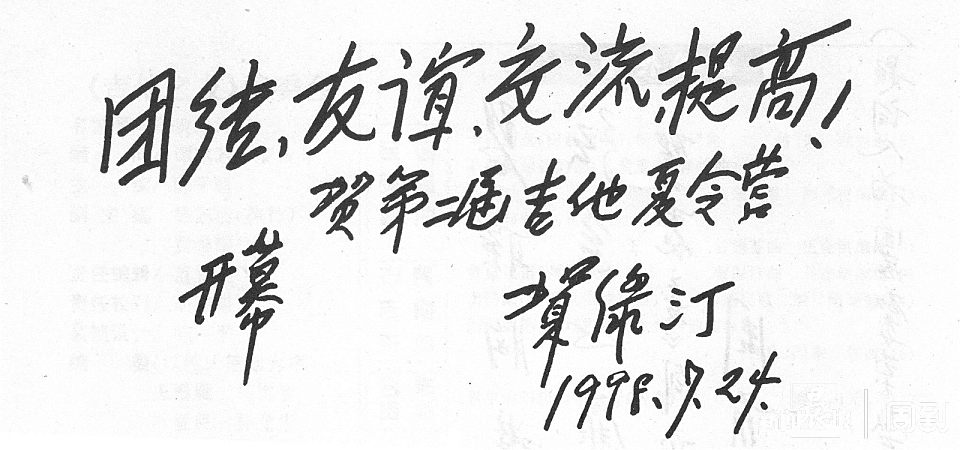 团结、友谊、交流、提高！
贺第二届吉他夏令营
开幕
贺绿汀
1998.7.24.
周到